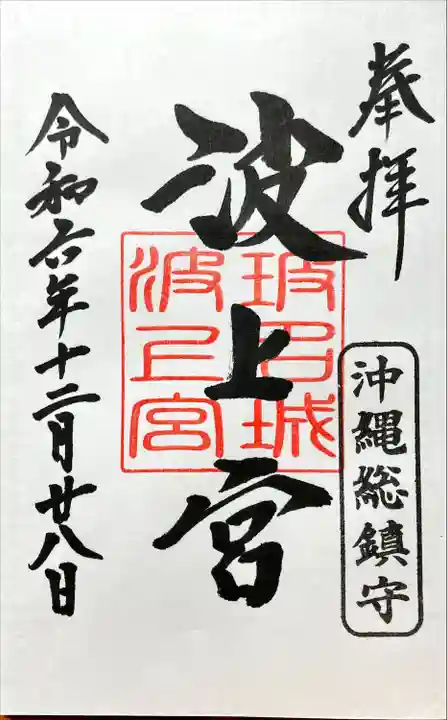 奉拝
沖縄総鎮守
波上宮
玻名城
波上宮
令和六年十二月廿八日